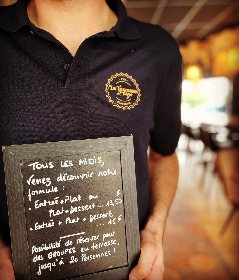 TOUS LES MIDIS,
Venez découvrir notre
formule :
• Entrée + Plat ou
Plat + Dessert ... 12,50
• Entrée + Plat + Dessert
... 15 €
Possibilité de réserver pour
des GROUPES en terrasse,
jusqu'à 20 Personnes !